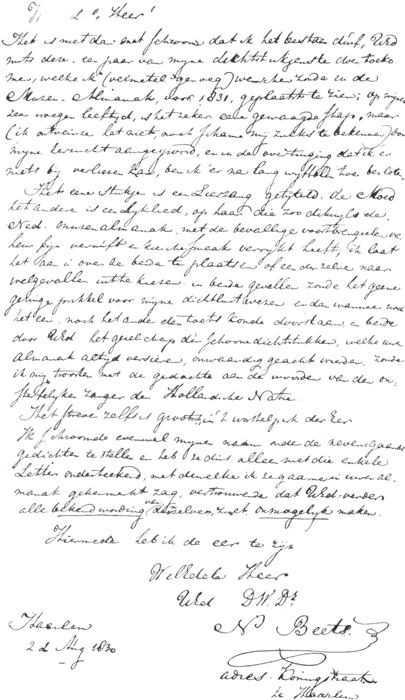 Heer!
Het is met dat dat ik het bestaan durf, UEd
mits deze, een paar van myne dichtstukjens te doen toeko
men, welke ik (vermetel genoeg) wenschen zoude in de
Muzen-Almanak, voor 1831, geplaatst te zien; Op myn
zeer vroegen leeftyd, is het zeker een gewaagde stap, maar
(ik ontveinze het niet, noch schame my zulks te bekennen) door
myne eerzucht aangespoord, en in de overtuiging dat ik er
niets by verliezen kan, ben ik er na lang wyfelen toe besloten.
Het eene stukje is een Lierzang getyteld de Moed
het andere is een Lyklied, op haar die zoo dikwyls de
Ned. muzenalmanak, met de bevallige voortbrengselen van
heur fyn vernuft en kieschen smaak verrykt heeft, ik laat
het aan u over ze beide te plaatsen of een derzelve naar
welgevallen uit te kiezen. in beide gevallen zoude het geene
geringe prikkel voor myne dichtlust wezen en dan wanneer noch
het een noch het ande den toets konde doorstaan en beide
door UEd het gezelschap die schoone dichtstukken, welke uwen
almanak altyd versieren, onwaardig geacht wierden, zoude
ik my troosten met de gedachte aan de woorden van den on-
sterfelyke zanger der Hollandsche Natie
Het streven zelfs is grootsch in 't worstelperk der Eer
Ik schroomde evenwel myne naam onder de nevensgaande
gedichten te stellen en heb ze dus alleen met die enkele
Letter onderteekend, met dewelke ik ze gaarne in uwen al-
manak gekenmerkt zag, vertrouwende dat UEd verder
alle bekend wording van dezelven, zult onmogelyk maken.
Hiermede heb ik de eer te zijn
WelEdele Heer
UEd D.W.Dr
N Beets
Haarlem
2d Aug 1830
adres. Koningstraat
te Haarlem